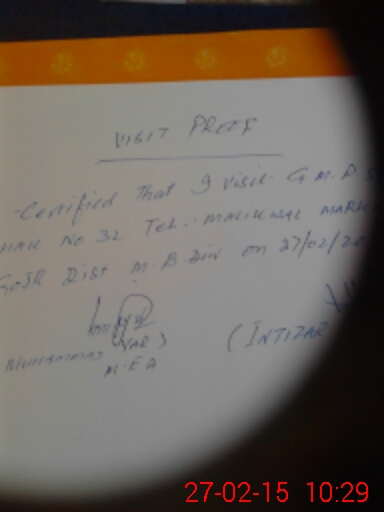 VISIT PROOF
Certified That I visit G.M.P.S
No 32 Teh: MALIKWAL MARK
Distt M.B.Din on 27/02/20
(INTIZAR
MUHAMMAD YAR)
M.E.A
27-02-15 10:29